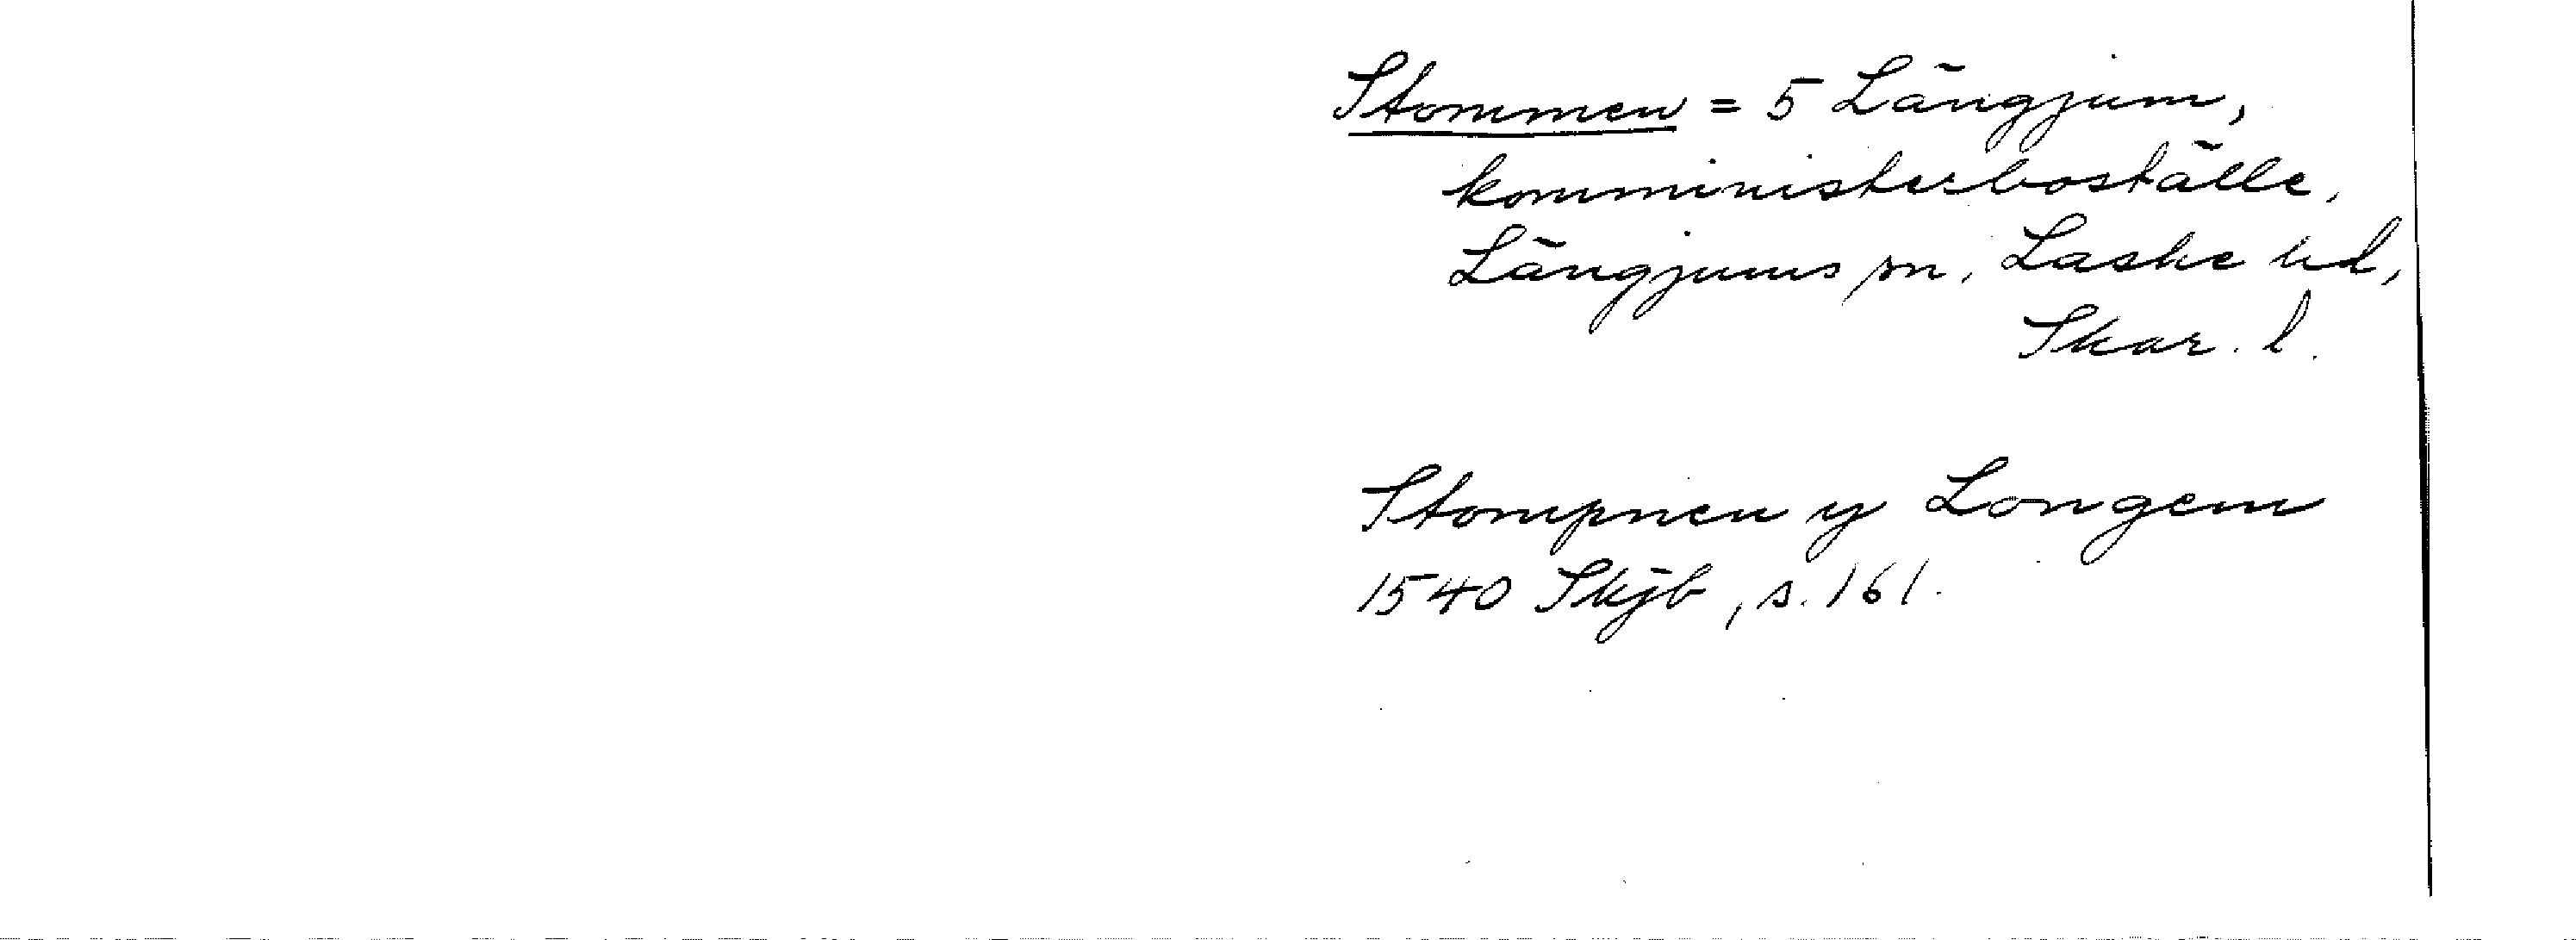 Stommen = 5 Längjum,
komministerboställe,
Längjums sn, Laske hd,
Skar. l.
Stompnen y Longem
1540 Skjb, s. 161.